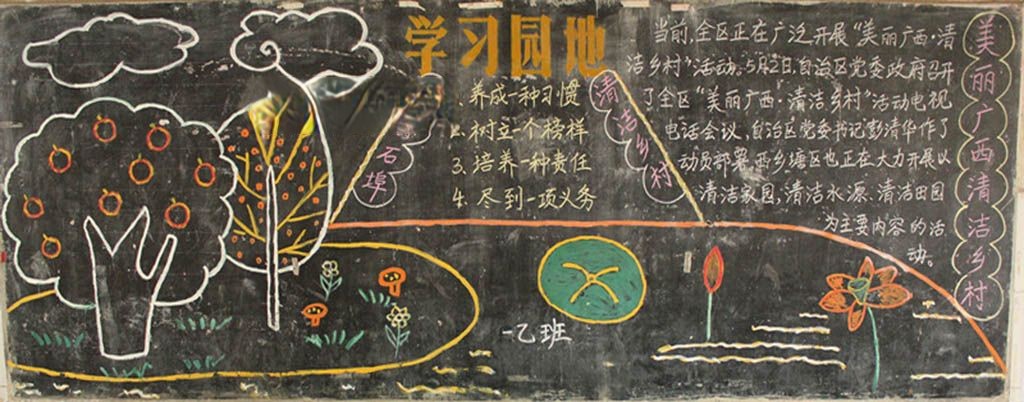 学习园地
1.养成一种习惯
2.树立一个榜样
3.培养一种责任
4.尽到一项义务
石埠
清洁乡村
当前,全区正在广泛开展“美丽广西·清
洁乡村”活动。5月2日,自治区党委政府召开
了全区“美丽广西·清洁乡村”活动电视
电话会议。自治区党委书记彭清华作了
动员部署。西乡塘区也正在大力开展以
清洁家园,清洁水源、清洁田园
为主要内容的活
动。
美丽广西清洁乡村
一乙班